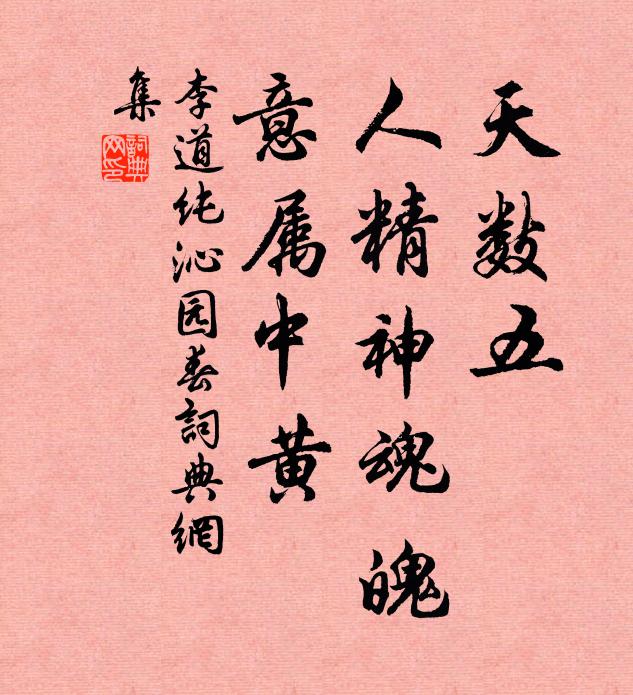 天数五
人精神魂魄
意属中黄
李道纯沁园春詞典網
集
詞典
网印